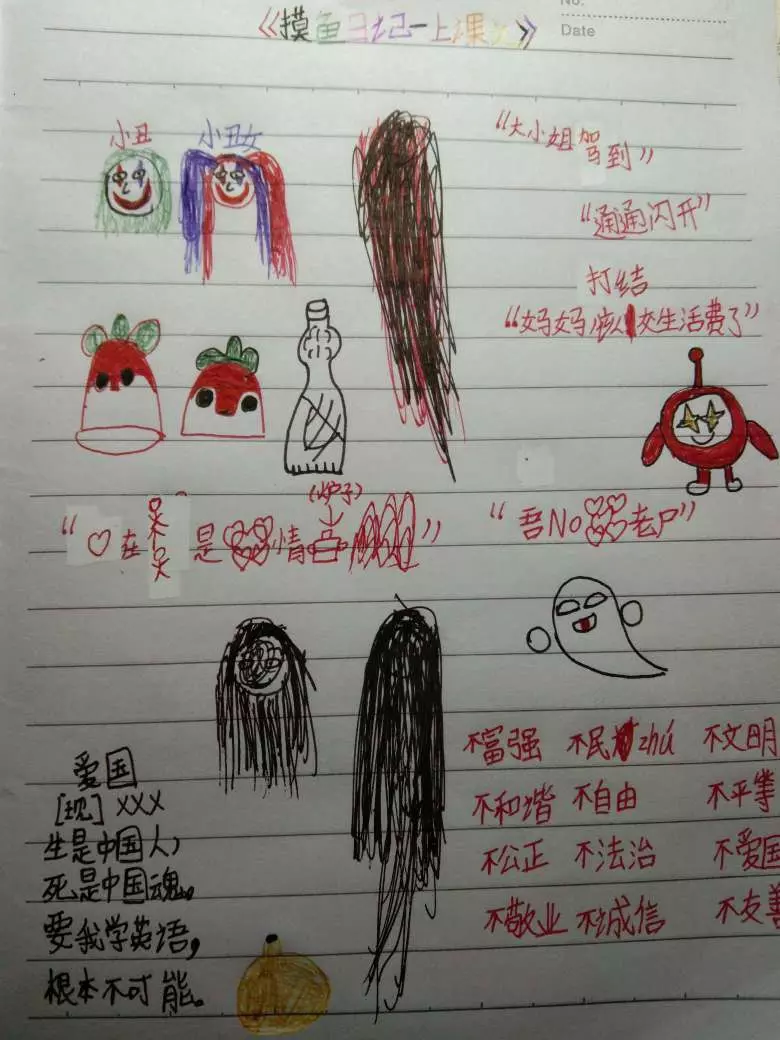 《摸鱼日记一上课
No.
Date
小丑 小丑女
“大小姐驾到”
“通通闪开”
打结
“妈妈 交生活费了”
(炉子)
“♡在呆呆是 情 ”
“吾No 老尸”
爱国
[现] XXX
生是中国人,
死是中国魂。
要我学英语,
根本不可能。
不富强 不民zhú 不文明
不和谐 不自由 不平等
不公正 不法治 不爱国
不敬业 不诚信 不友善